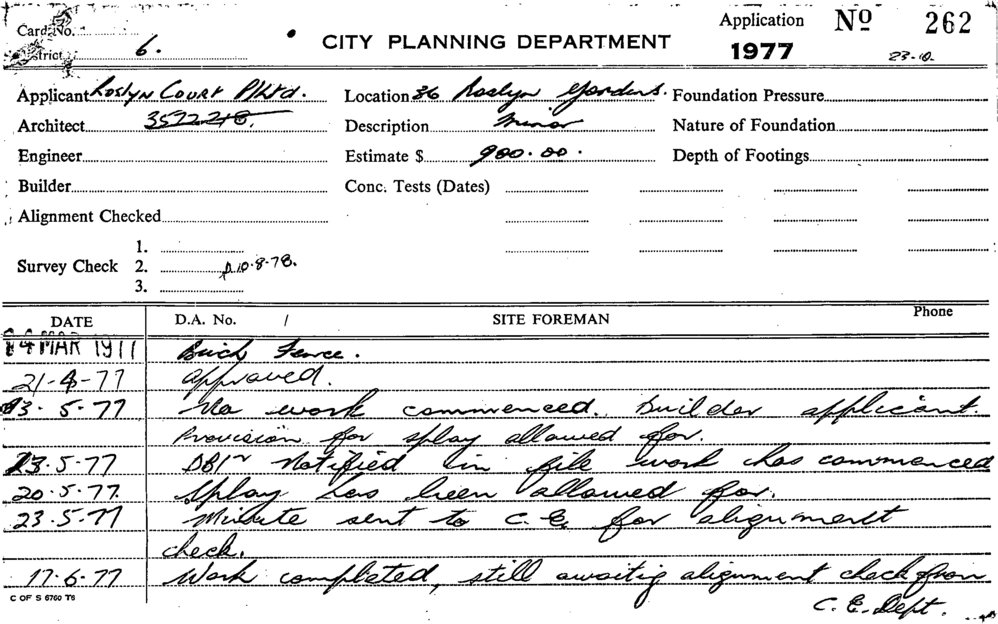 Card No.
District 6.
CITY PLANNING DEPARTMENT
Application Nº 262
1977 23-10.
Applicant Roslyn Court P/Ltd. Location 36 Roslyn Gardens. Foundation Pressure
Architect 3572218. Description Minor Nature of Foundation
Engineer Estimate $ 900.00. Depth of Footings
Builder Conc. Tests (Dates)
Alignment Checked
1.
Survey Check 2. 10.8.78.
3.
DATE D.A. No. / SITE FOREMAN Phone
MAR 1977 Brick Fence.
21-4-77 Approved.
3.5.77 No work commenced. Builder applicant.
Provision for splay allowed for.
13.5.77 Notified in file work has commenced
20.5.77. Splay has been allowed for.
23.5.77 Minute sent to C.E. for alignment
check.
17.6.77 Work completed, still awaitig alignment check from
C.E. Dept.
C OF S 6760 T6